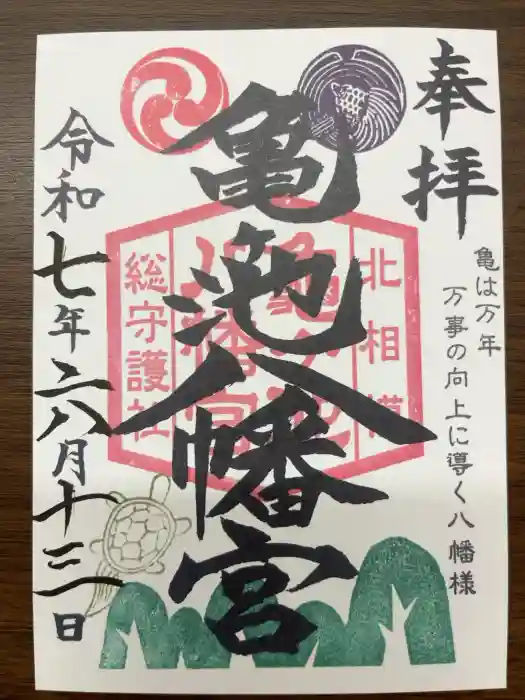 奉拝
亀は万年
万事の向上に導く八幡様
北相模
龜ヶ池
八幡宮
総守護社
亀池八幡宮
令和七年六月十三日